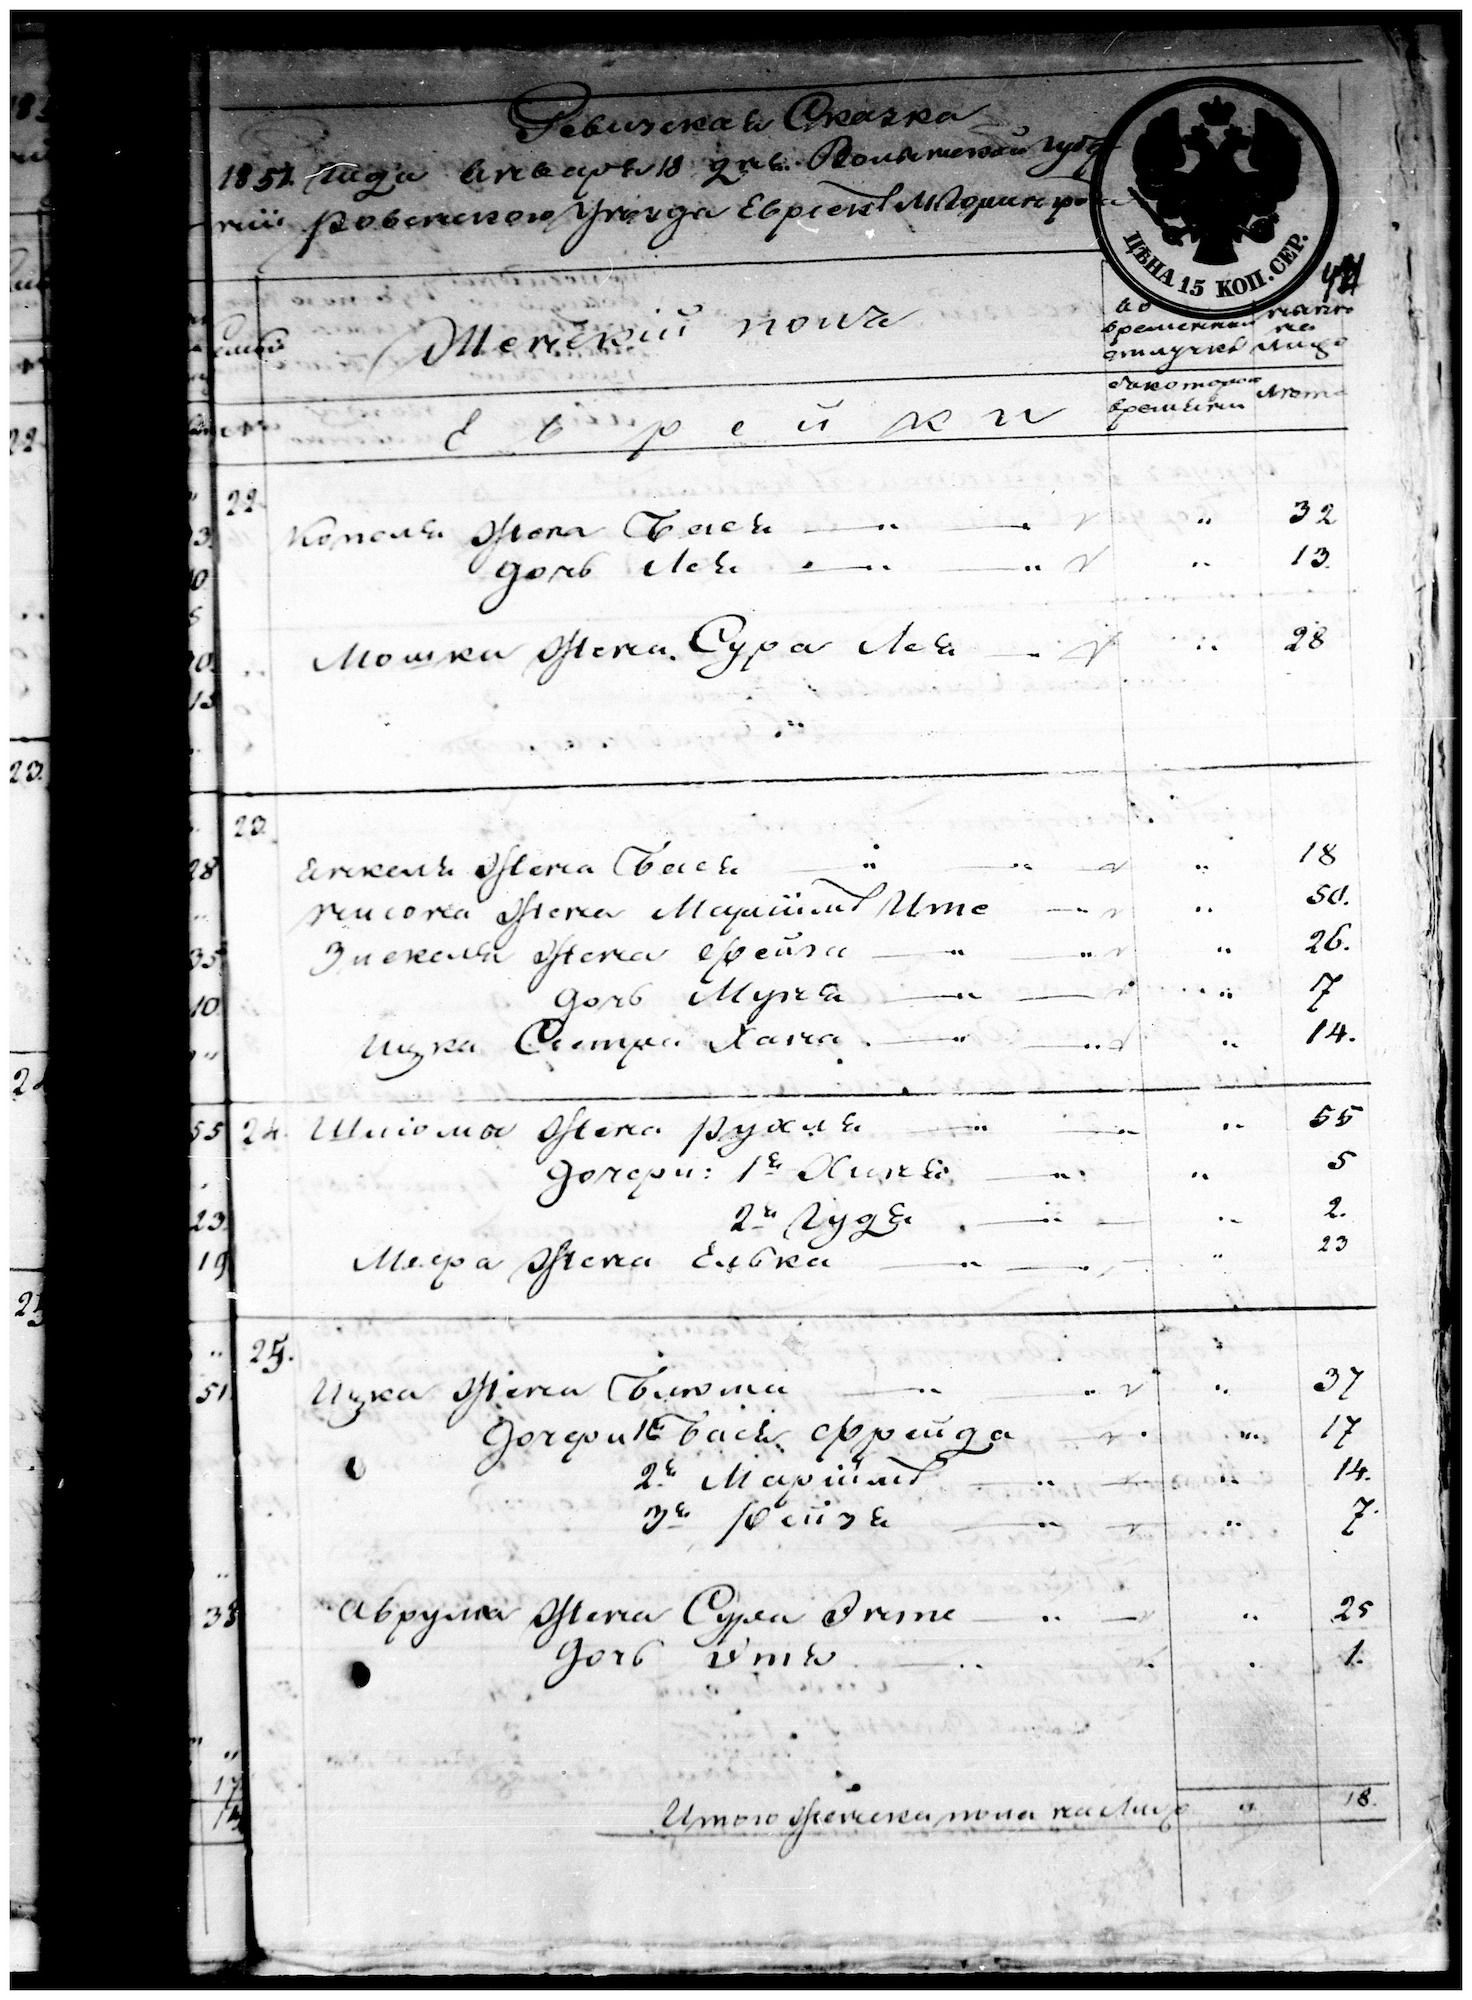 Ревизская Сказка
1851 года Января 18 дня Волынской губер
нии Ровенского Уезда Евреевъ
ЦѢНА 15 КОП. СЕР.
Женский полъ
во временной отлучкѣ
налицо на лицо
съ котораго времяни
Лѣта
№
Еврейки
22.
Копеля Жена Бася 32
дочь Лея 13.
Мошка Жена Сура Лея 28
23.
Янкеля Жена Бася 18
Нисона Жена Маріимъ Ите 50.
Зискеля Жена Фейга 26.
дочь Муня 7
Ицка Сестра Хана 14.
24. Шліомы Жена Рухля 55
дочери: 1я Хиня 5
2я Гудя 2.
Меера Жена Елька 23
25.
Ицка Жена Блюма 37
дочери 1я Бася Фрейда 17
2я Маріимъ 14.
3я Рейзя 7.
Абрума Жена Сура Энте 25
дочь Итя 1.
Итого Женска пола на Лицо 18.